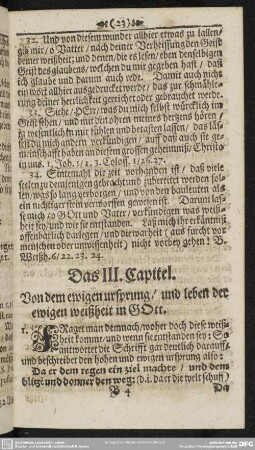 (23)
32. Und von diesem wunder allhier etwas zu lallen/
gib mir/ o Vatter/ nach deiner Verheissung den Geist
deiner weißheit; und denen/ die es lesen/ eben denselbigen
Geist des glaubens/ welchen du mir gegeben hast/ daß
ich glaube und darum auch rede. Damit auch nicht
ein wort allhier ausgedrucket werde/ das zur schmäle-
rung deiner herlichkeit gereichet oder gebrauchet werde.
33. Siehe/ HErr/ was du mich selbst würcklich im
Geist sehen/ und mit den ohren meines hertzens hören/
ja wesentlich mit fühlen und betasten lassen/ das läs-
sest du mich andern verkündigen/ auff daß auch sie ge-
meinschafft haben an diesem grossen geheimniß/ Christo
in uns. 1. Joh. 1/1, 3. Coloss. 1/26. 27.
34. Sintemahl die zeit vorhanden ist/ daß viele
seelen zu demjenigen gebracht und zubereitet werden sol-
len/ was so lang verborgen/ und von den bauleuten als
ein nichtiger stein verworffen gewesen ist. Darum las-
se mich/ o GOtt und Vater/ verkündigen was weiß-
heit sey/ und wie sie entstanden. Laß mich ihr erkäntniß
offenbarlich darlegen/ und die warheit (aus furcht vor
menschen oder unwissenheit) nicht vorbey gehen! B.
Weißh. 6/22. 23. 24.
Das III. Capitel.
Von dem ewigen ursprung/ und leben der
ewigen weißheit in GOtt.
1. FRaget man demnach/ woher doch diese weiß-
heit komme/ und wenn sie entstanden sey: So
antwortet die Schrifft gar deutlich darauff/
und beschreibet den hohen und ewigen ursprung also:
Da er dem regen ein ziel machte/ und dem
blitz und donner den weg: (d. i. da er die welt schuff)
B 4
Da